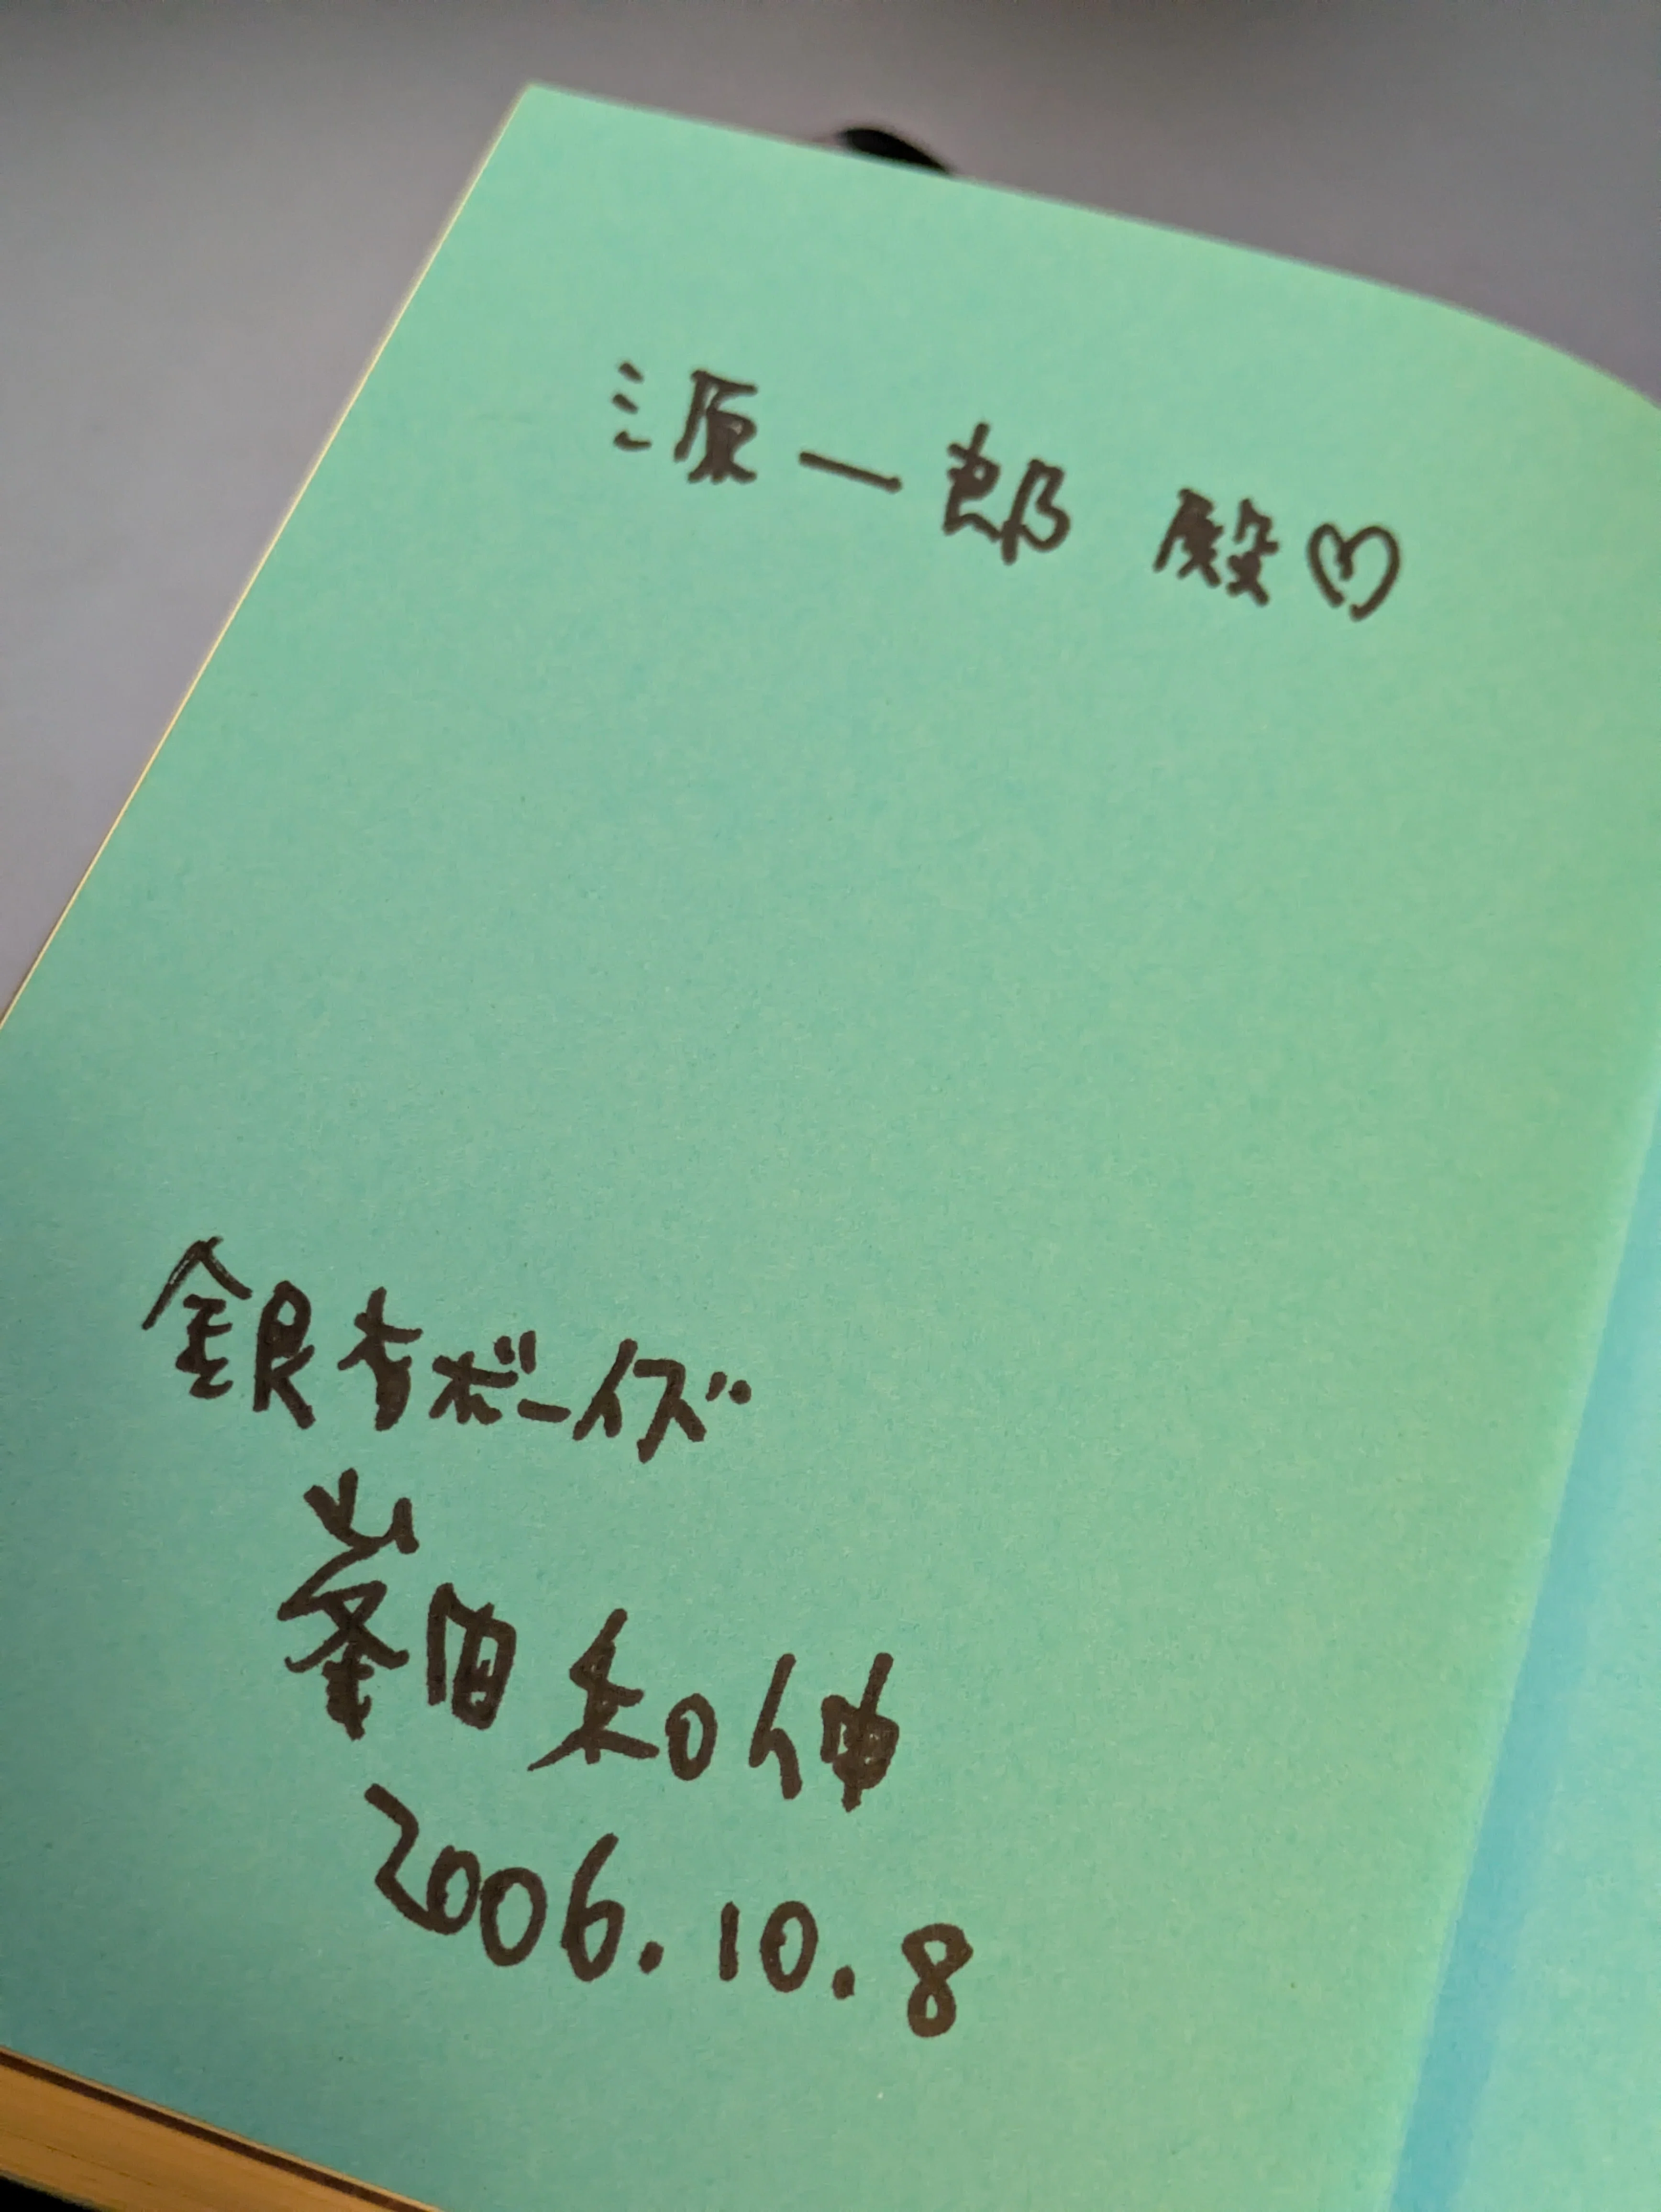 源一郎 殿♡
銀杏ボーイズ
峯田和伸
2006.10.8